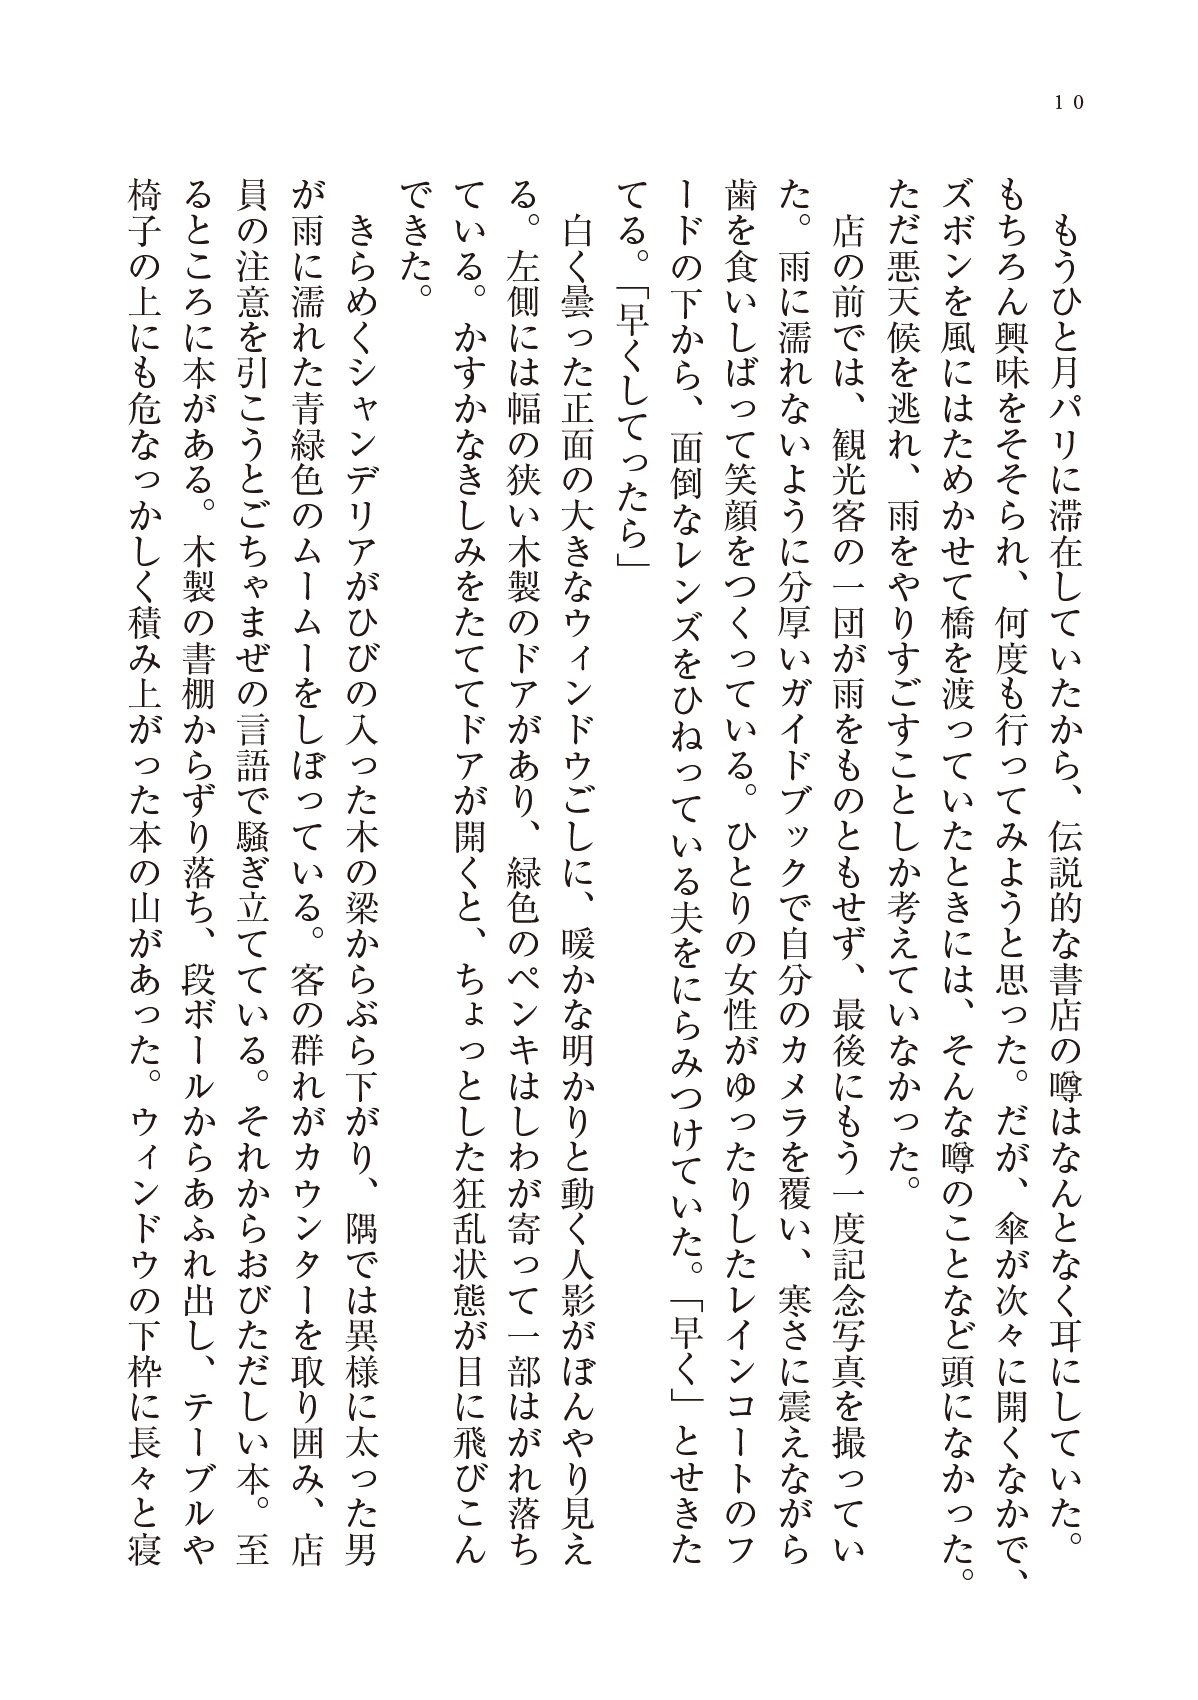 10
　もうひと月パリに滞在していたから、伝説的な書店の噂はなんとなく耳にしていた。
もちろん興味をそそられ、何度も行ってみようと思った。だが、傘が次々に開くなかで、
ズボンを風にはためかせて橋を渡っていたときには、そんな噂のことなど頭になかった。
ただ悪天候を逃れ、雨をやりすごすことしか考えていなかった。
　店の前では、観光客の一団が雨をものともせず、最後にもう一度記念写真を撮ってい
た。雨に濡れないように分厚いガイドブックで自分のカメラを覆い、寒さに震えながら
歯を食いしばって笑顔をつくっている。ひとりの女性がゆったりしたレインコートのフ
ードの下から、面倒なレンズをひねっている夫をにらみつけていた。「早く」とせきた
てる。「早くしてったら」
　白く曇った正面の大きなウィンドウごしに、暖かな明かりと動く人影がぼんやり見え
る。左側には幅の狭い木製のドアがあり、緑色のペンキはしわが寄って一部はがれ落ち
ている。かすかなきしみをたててドアが開くと、ちょっとした狂乱状態が目に飛びこん
できた。
　きらめくシャンデリアがひびの入った木の梁からぶら下がり、隅では異様に太った男
が雨に濡れた青緑色のムームーをしぼっている。客の群れがカウンターを取り囲み、店
員の注意を引こうとごちゃまぜの言語で騒ぎ立てている。それからおびただしい本。至
るところに本がある。木製の書棚からずり落ち、段ボールからあふれ出し、テーブルや
椅子の上にも危なっかしく積み上がった本の山があった。ウィンドウの下枠に長々と寝